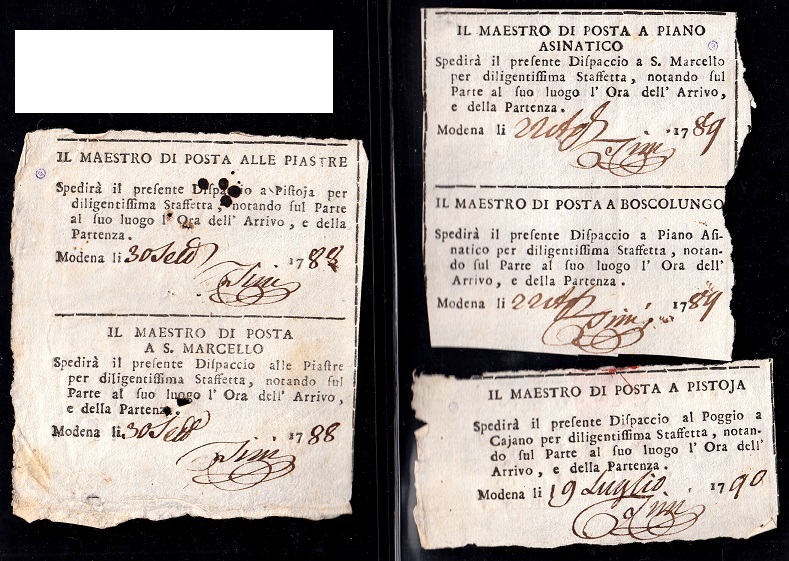 IL MAESTRO DI POSTA ALLE PIASTRE
Spedirà il preſente Diſpaccio a Piſtoja per
diligentiſſima Staffetta, notando ſul Parte
al ſuo luogo l' Ora dell' Arrivo, e della
Partenza.
Modena li 30 1788
IL MAESTRO DI POSTA
A S. MARCELLO
Spedirà il preſente Diſpaccio alle Piaſtre
per diligentiſſima Staffetta, notando ſul
Parte al ſuo luogo l' Ora dell' Arrivo,
e della Partenza.
Modena li 30 1788
IL MAESTRO DI POSTA A PIANO
ASINATICO
Spedirà il preſente Diſpaccio a S. Marcello
per diligentiſſima Staffetta, notando ſul
Parte al ſuo luogo l' Ora dell' Arrivo,
e della Partenza.
Modena li 1789
IL MAESTRO DI POSTA A BOSCOLUNGO
Spedirà il preſente Diſpaccio a Piano Aſi-
natico per diligentiſſima Staffetta, notan-
do ſul Parte al ſuo luogo l' Ora dell'
Arrivo, e della Partenza.
Modena li 1789
IL MAESTRO DI POSTA A PISTOJA
Spedirà il preſente Diſpaccio al Poggio a
Cajano per diligentiſſima Staffetta, notan-
do ſul Parte al ſuo luogo l' Ora dell'
Arrivo, e della Partenza.
Modena li 19 Luglio 1790